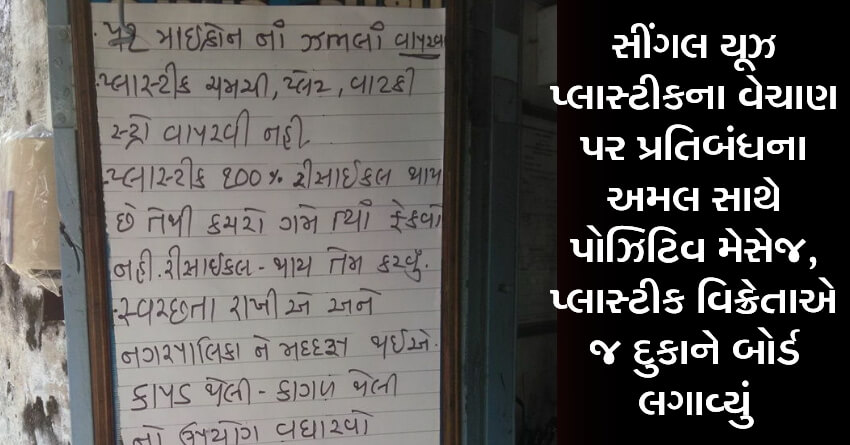 માઈક્રોન ની ઝભલી વાપરવા
પ્લાસ્ટીક ચમચી, પ્લેટ, વાટકી
સ્ટ્રો વાપરવી નહી
પ્લાસ્ટીક ૧૦૦% રીસાઈકલ થાય
છે તેથી કચરો ગમે ત્યાં ફેંકવો
નહી. રીસાઈકલ - થાય તેમ કરવું.
સ્વચ્છતા રાખીએ અને
નગરપાલિકા ને મદદરૂપ થઈએ.
કાપડ થેલી - કાગળ થેલી
નો ઉપયોગ વધારવો
સીંગલ યૂઝ
પ્લાસ્ટીકના વેચાણ
પર પ્રતિબંધના
અમલ સાથે
પોઝિટિવ મેસેજ,
પ્લાસ્ટીક વિક્રેતાએ
જ દુકાને બોર્ડ
લગાવ્યું